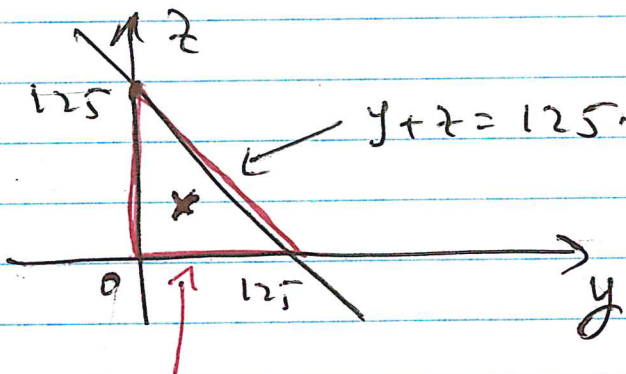 z
125
y+z=125.
0
125
y